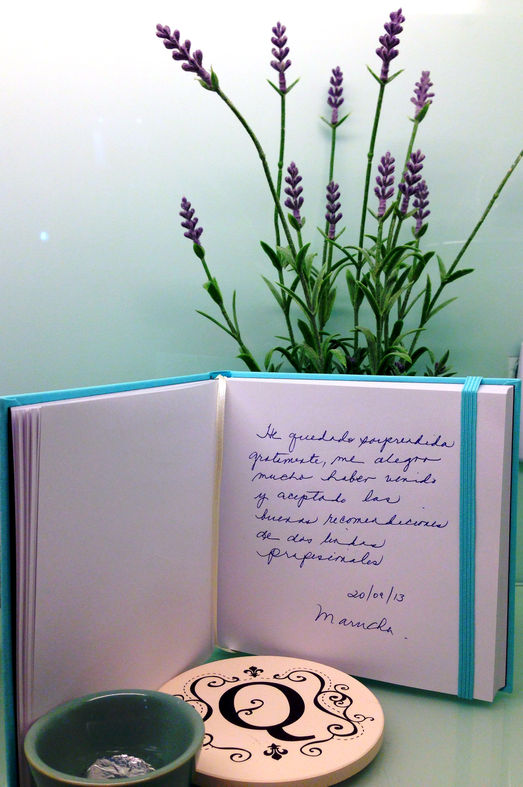 He quedado sorprendida
gratamente, me alegro
mucho haber venido
y aceptado las
buenas recomendaciones
de dos lindas
profesionales
20/09/13
Marucha.
Q